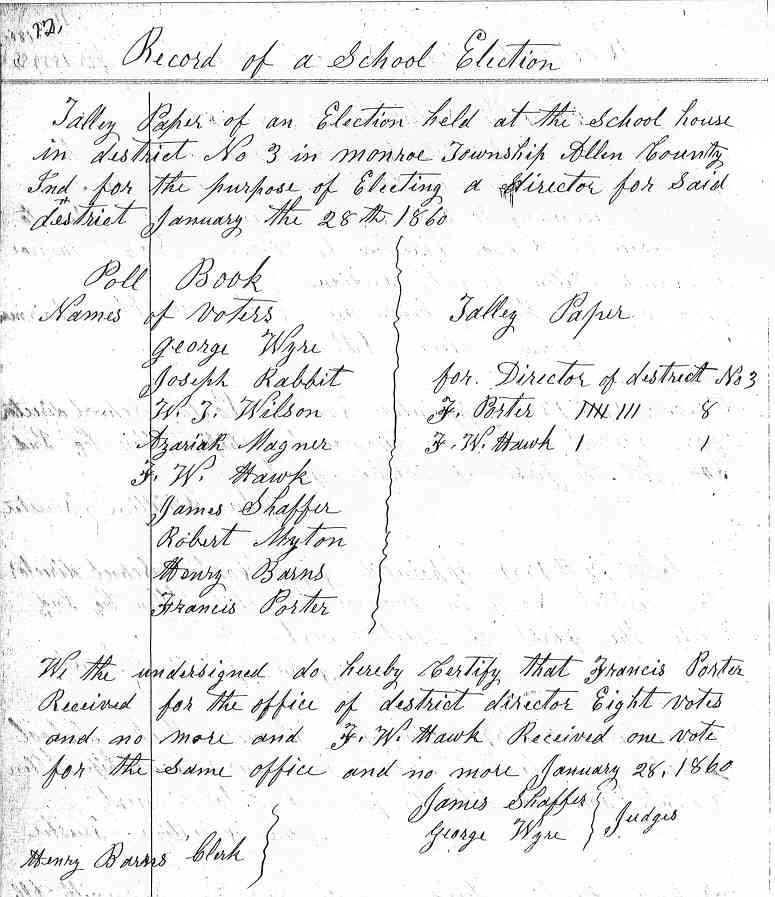 22.
Record of a School Election
Talley Paper of an Election held at the School house
in district No 3 in monroe Township Allen County
Ind for the purpose of Electing a director for Said
district January the 28th 1860
Poll Book
Names of voters
George Wyre
Joseph Rabbit
W. T. Wilson
Azariah Magner
F. W. Hawk
James Shaffer
Robert Myton
Henry Barns
Francis Porter
Talley Paper
for. Director of destrict No 3
F. Porter 1111 111 8
F. W. Hawk 1 1
We the undersigned do hereby Certify that Francis Porter
Received for the office of destrict director Eight votes
and no more and F. W. Hawk Received one vote
for the same office and no more January 28, 1860
James Shaffer
George Wyre
Judges
Henry Barns Clerk